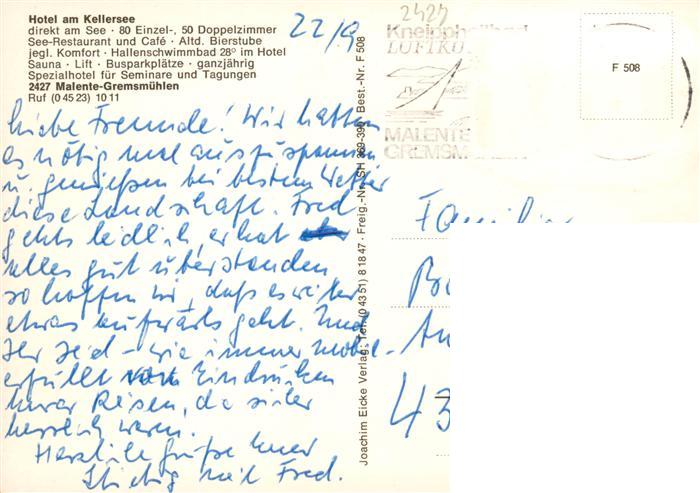 Hotel am Kellersee
direkt am See · 80 Einzel-, 50 Doppelzimmer
See-Restaurant und Café · Altd. Bierstube
jegl. Komfort · Hallenschwimmbad 28° im Hotel
Sauna · Lift · Busparkplätze · ganzjährig
Spezialhotel für Seminare und Tagungen
2427 Malente-Gremsmühlen
Ruf (0 45 23) 10 11
22/9
Liebe Freunde! Wir hatten
es nötig mal auszuspannen
u. genießen bei bestem Wetter
diese Landschaft. Fred
gehts leidlich, er hat
alles gut überstanden
so hoffen wir, daß es weiter
etwas aufwärts geht. Und
Ihr seid – wie immer
erfüllt von Eindrücken
Eurer Reisen, die sicher
herrlich waren.
Herzliche Grüße Eure
mit Fred.
Joachim Eicke Verlag: Tel. (0 43 51) 8 18 47 · Freig.-Nr. SH 369-390 Best.-Nr. F 508
2427
Kneippheilbad
LUFTKU
MALENTE
GREMSM
F 508
Familie
43